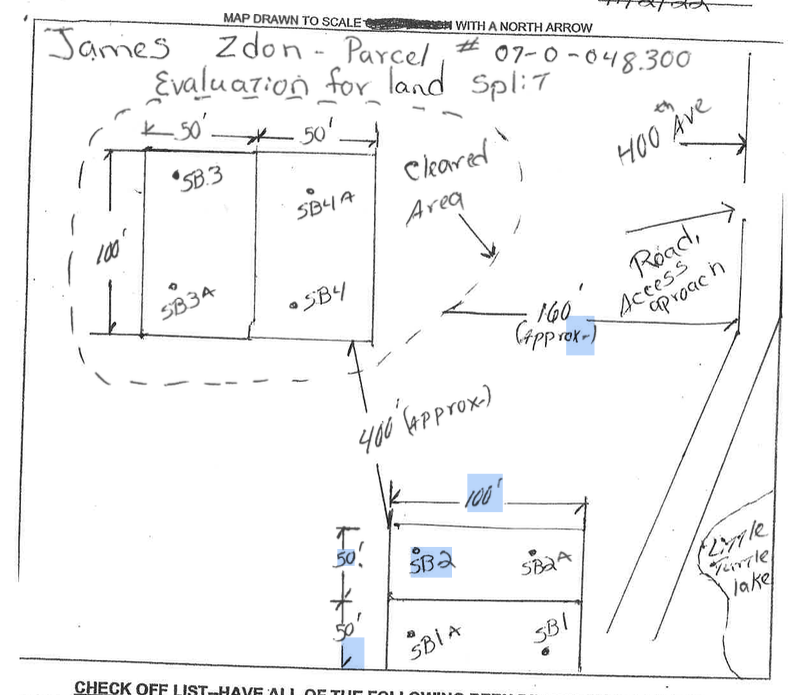 MAP DRAWN TO SCALE WITH A NORTH ARROW
James Zdon - Parcel # 07-0-048.300
Evaluation for land Split
50' 50'
400th Ave
Cleared
Area
SB3
SB4A
100'
Road,
Access
aproach
SB3A
SB4
160'
(Approx-)
400' (Approx-)
100'
50'
SB2
SB2A
Little
Turtle
lake
50'
SB1A
SB1
CHECK OFF LIST--HAVE ALL OF THE FOLLOWING